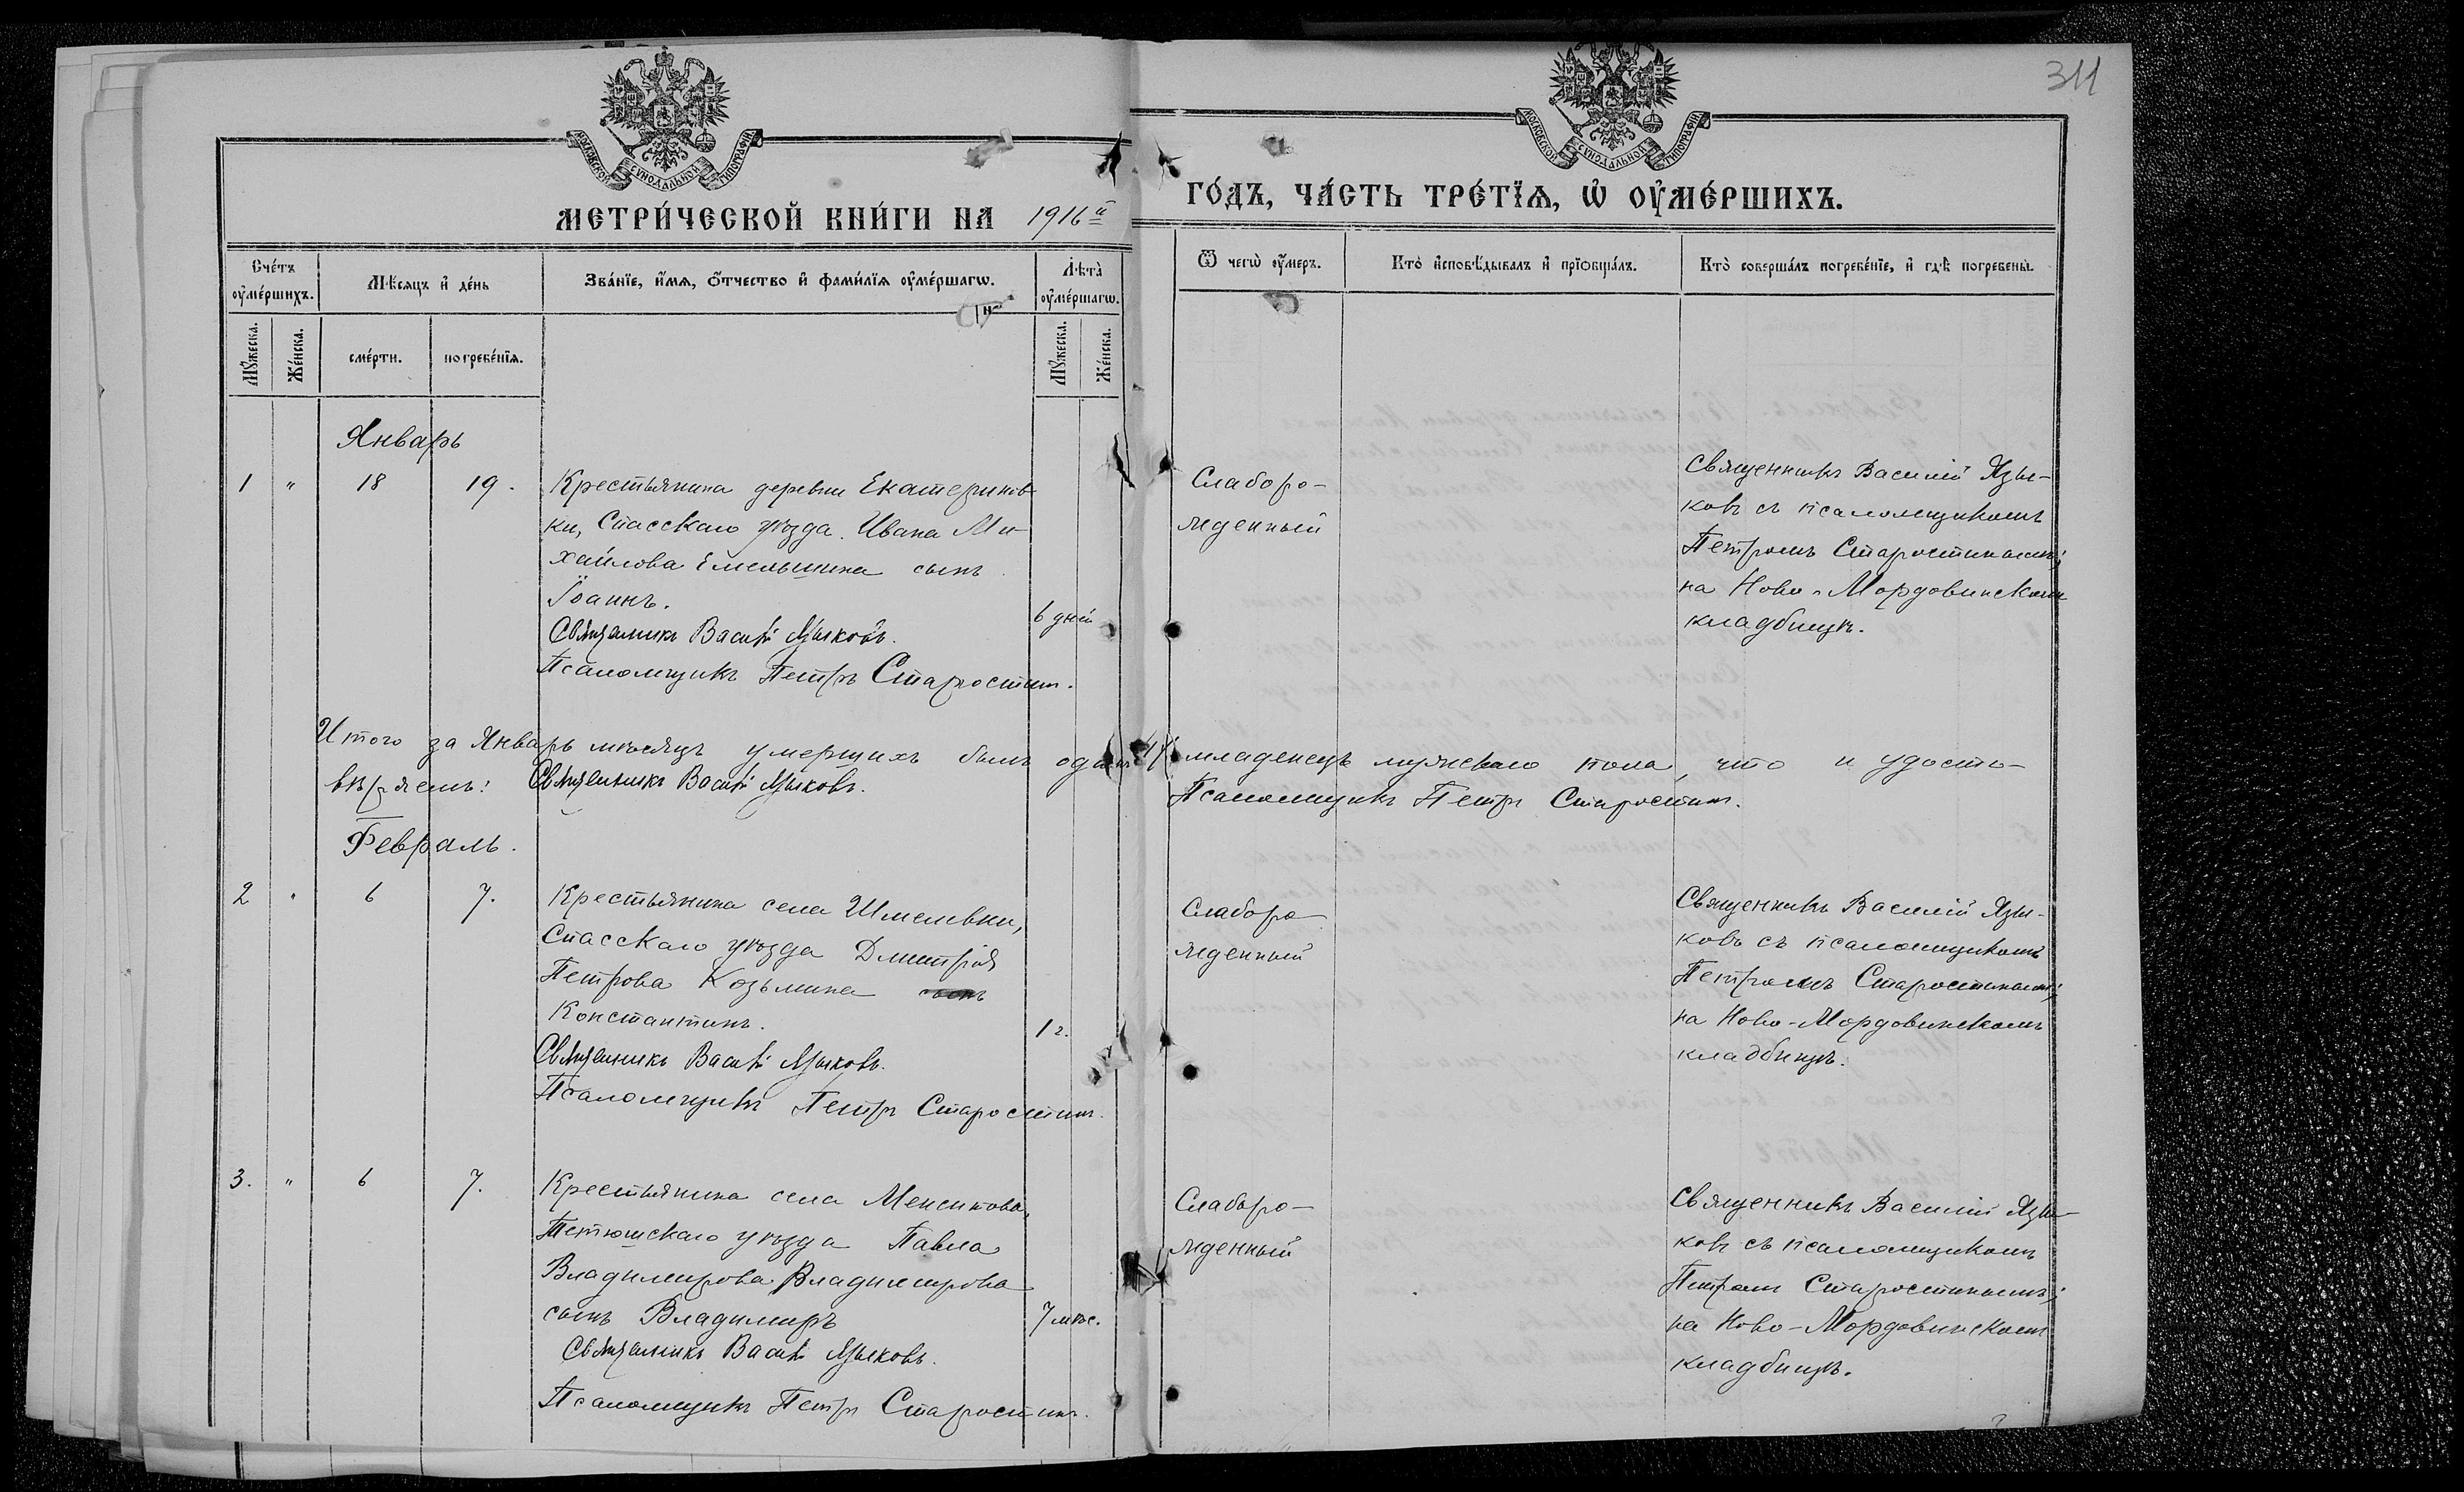 311
МОСКОВСКОЙ СѴНОДАЛЬНОЙ ТИПОГРАФІИ
МОСКОВСКОЙ СѴНОДАЛЬНОЙ ТИПОГРАФІИ
МЕТРИ́ЧЕСКОЙ КНИ́ГИ НА 1916й ГО́ДЪ, ЧА́СТЬ ТРЕ́ТЇѦ, Ѡ҆ ОУ҆МЕ́РШИХЪ.
Сче́тъ оу҆ме́ршихъ.
Мѣ́сяцъ и҆ де́нь
Зва́нїе, и҆́мѧ, ѻ҆́тчество и҆ фами́лїѧ оу҆ме́ршагѡ.
Лѣта̀ оу҆ме́ршагѡ.
Ѿ чегѡ̀ оу҆́меръ.
Кто̀ и҆сповѣ́дывалъ и҆ прїѡбща́лъ.
Кто̀ соверша́лъ погребе́нїе, и҆ гдѣ̀ погребены̀.
Мꙋ́жеска.
Же́нска.
сме́рти.
погребе́нїѧ.
Мꙋ́жеска.
Же́нска.
Январь
1 " 18 19.
Крестьянина деревни Екатеринов-
ки, Спасскаго уѣзда. Ивана Ми-
хайлова Емельшина сынъ
Іоаннъ.
6 дней
Священникъ Василій Языковъ.
Псаломщикъ Петръ Старостинъ.
Слаборо-
жденный
Священникъ Василій Язы-
ковъ съ псаломщикомъ
Петромъ Старостинымъ;
на Ново-Мордовинскомъ
кладбищѣ.
Итого за Январь мѣсяцъ умершихъ былъ одинъ /1/ младенецъ мужскаго пола, что и удосто-
вѣряемъ: Священникъ Василій Языковъ. Псаломщикъ Петръ Старостинъ.
Февраль.
2 " 6 7.
Крестьянина села Измелевки,
Спасскаго уѣзда Дмитрія
Петрова Козьмина сынъ
Константинъ.
1 г.
Священникъ Василій Языковъ.
Псаломщикъ Петръ Старостинъ.
Слаборо-
жденный
Священникъ Василій Язы-
ковъ съ псаломщикомъ
Петромъ Старостинымъ;
на Ново-Мордовинскомъ
кладбищѣ.
3. " 6 7.
Крестьянина села Менситова,
Тетюшскаго уѣзда Павла
Владимирова Владимирова
сынъ Владимиръ
7 мѣс.
Священникъ Василій Языковъ.
Псаломщикъ Петръ Старостинъ.
Слаборо-
жденный
Священникъ Василій Язы-
ковъ съ псаломщикомъ
Петромъ Старостинымъ;
на Ново-Мордовинскомъ
кладбищѣ.